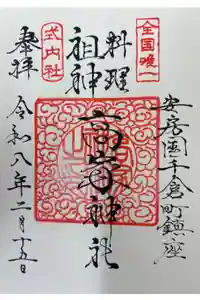 全国唯一
料理
祖神
式内社
奉拝
高家神社
安房国千倉町鎮座
令和八年二月十五日